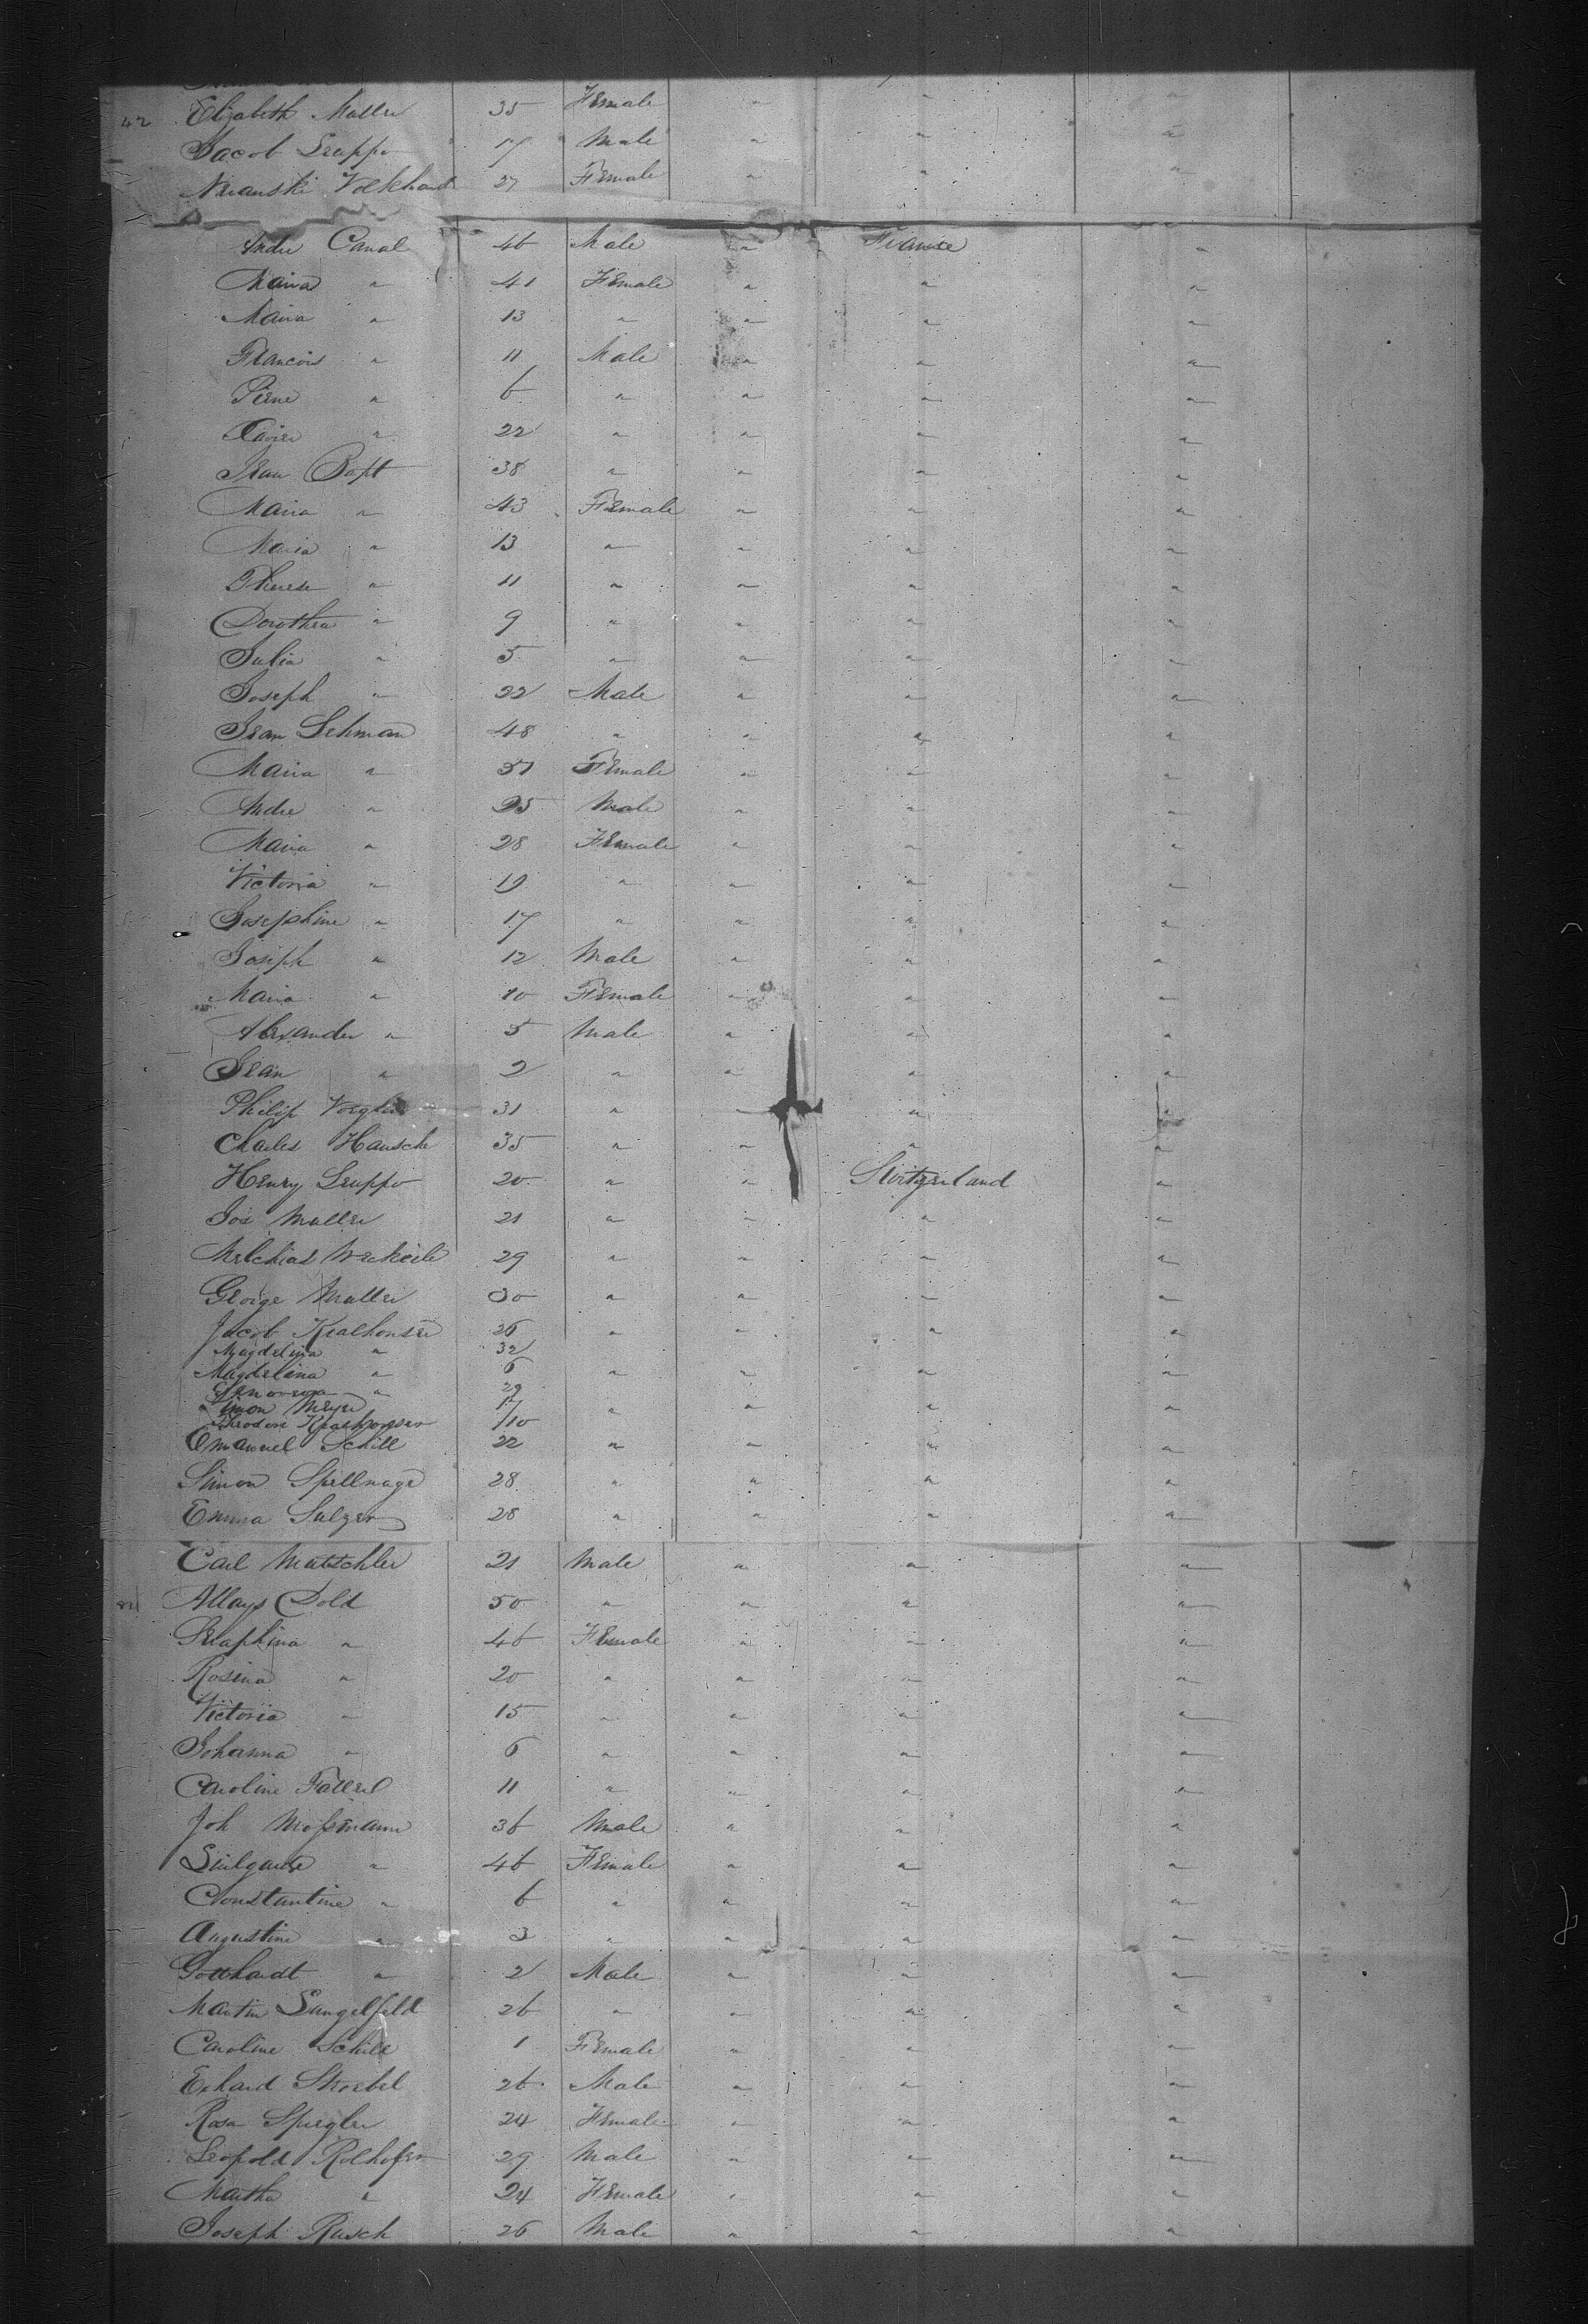 Elizabeth Muller 35 Female " " "
42 Jacob Leuppo 17 Male " " "
Volkhardt 27 Female " " "
Andre Canal 46 Male " France "
Maria " 41 Female " " "
Maria " 13 " " " "
Francois " 11 Male " " "
Pierre " 6 " " " "
Xavier " 22 " " " "
Jean Bapt 38 " " " "
Maria " 43 Female " " "
Maria " 13 " " " "
Therese " 11 " " " "
Dorothea " 9 " " " "
Julia " 5 " " " "
Joseph " 22 Male " " "
Jean Lehman 48 " " " "
Maria " 37 Female " " "
Andre " 25 Male " " "
Maria " 28 Female " " "
Victoria " 19 " " " "
Josephine " 17 " " " "
Joseph " 12 Male " " "
Maria " 10 Female " " "
Alexander " 5 Male " " "
Jean " 2 " " " "
Philip 31 " " " "
Charles Hausch 35 " " " "
Henry Leuppo 20 " " Switzerland "
Jos Muller 21 " " " "
Melchiad 29 " " " "
George Muller 30 " " " "
Jacob Kealhouser 26 " " " "
Magdelina " 32
Magdelina " 6 " " " "
Genoveva " 29
Simon Meyer 17 " " " "
Theodore Kealhouser /10
Emanuel Schill 22 " " " "
Simon Spellnage 28 " " " "
Emma Sulzer 28 " " " "
Carl Mutschler 21 Male " " "
Alloys Dold 50 " " " "
Seraphina " 46 Female " " "
Rosina " 20 " " " "
Victoria " 15 " " " "
Johanna " 6 " " " "
Caroline 11 " " " "
Joh Mossmann 36 Male " " "
" 46 Female " " "
Constantine " 6 " " " "
Augustine " 3 " " " "
Gotthardt " 2 Male " " "
Martin Sungelfeld 26 " " " "
Caroline Schill 1 Female " " "
Erhard Stroebel 26 Male " " "
Rosa Spiegler 24 Female " " "
Leopold Rolhofer 29 Male " " "
Martha " 24 Female " " "
Joseph Rusch 26 Male " " "